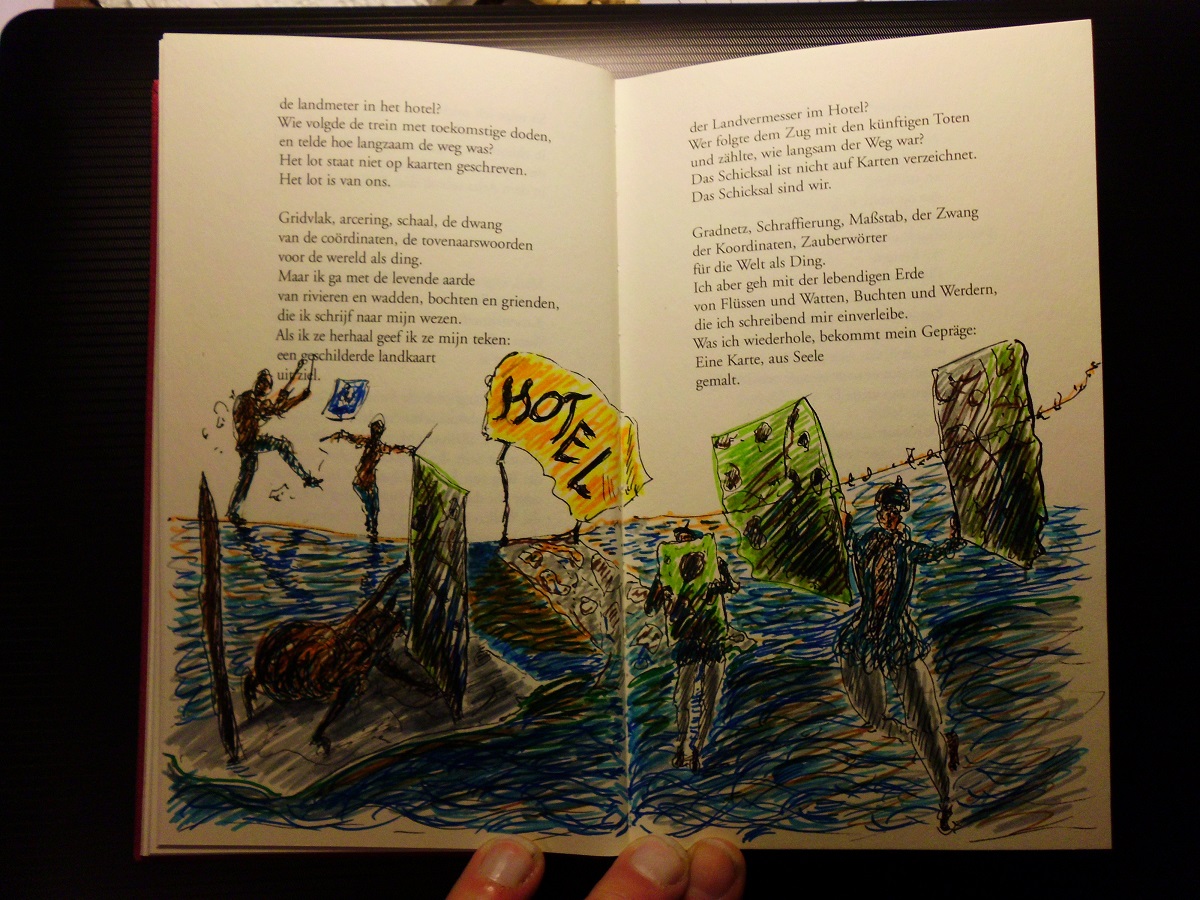 de landmeter in het hotel?
Wie volgde de trein met toekomstige doden,
en telde hoe langzaam de weg was?
Het lot staat niet op kaarten geschreven.
Het lot is van ons.
Gridvlak, arcering, schaal, de dwang
van de coördinaten, de tovenaarswoorden
voor de wereld als ding.
Maar ik ga met de levende aarde
van rivieren en wadden, bochten en grienden,
die ik schrijf naar mijn wezen.
Als ik ze herhaal geef ik ze mijn teken:
een geschilderde landkaart
uit ziel.
HOTEL
der Landvermesser im Hotel?
Wer folgte dem Zug mit den künftigen Toten
und zählte, wie langsam der Weg war?
Das Schicksal ist nicht auf Karten verzeichnet.
Das Schicksal sind wir.
Gradnetz, Schraffierung, Maßstab, der Zwang
der Koordinaten, Zauberwörter
für die Welt als Ding.
Ich aber geh mit der lebendigen Erde
von Flüssen und Watten, Buchten und Werdern,
die ich schreibend mir einverleibe.
Was ich wiederhole, bekommt mein Gepräge:
Eine Karte, aus Seele
gemalt.